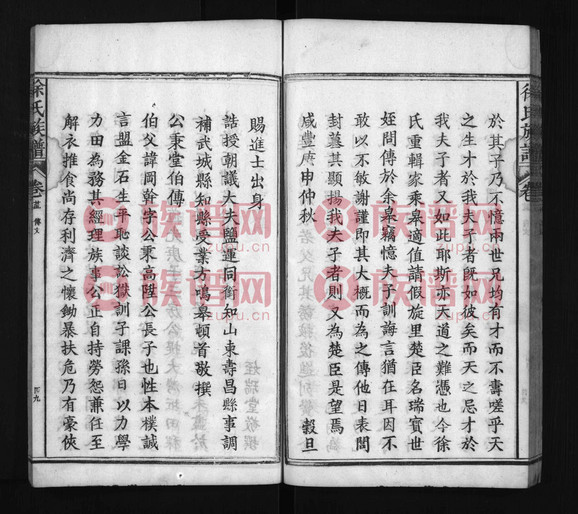 徐氏族譜 卷
於其子乃不憶兩世兄均有才而不壽嗟乎天
之生才於我夫子者既如彼矣而天之忌才於
我夫子者又如此耶斯亦天道之難憑也今徐
氏重輯家乘皋適值請假旋里楚臣名瑞賓世
姪問傳於余皋竊憶夫子訓誨言猶在耳因不
敢以不敏謝謹即其大概而為之傳他日表閭
封墓其顯揚我夫子者則又為楚臣是望焉
咸豐庚申仲秋 穀旦
賜進士出身
誥授朝議大夫鹽運同銜知山東壽昌縣事調
補武城縣知縣受業方鳴皋頓首敬撰
公秉堂伯傳
伯父諱岡幹字公秉高陞公長子也性本樸誠
言盟金石生平恥談訟獄訓子課孫日以力學
力田為務其經理族事公正自持勞怨兼任至
解衣推食尚存利濟之懷鋤暴扶危乃有豪俠
徐氏族譜 卷 傳文 四九
族譜网
zupu.cn
族譜网
zupu.cn
族譜网
zupu.cn
族譜网
zupu.cn